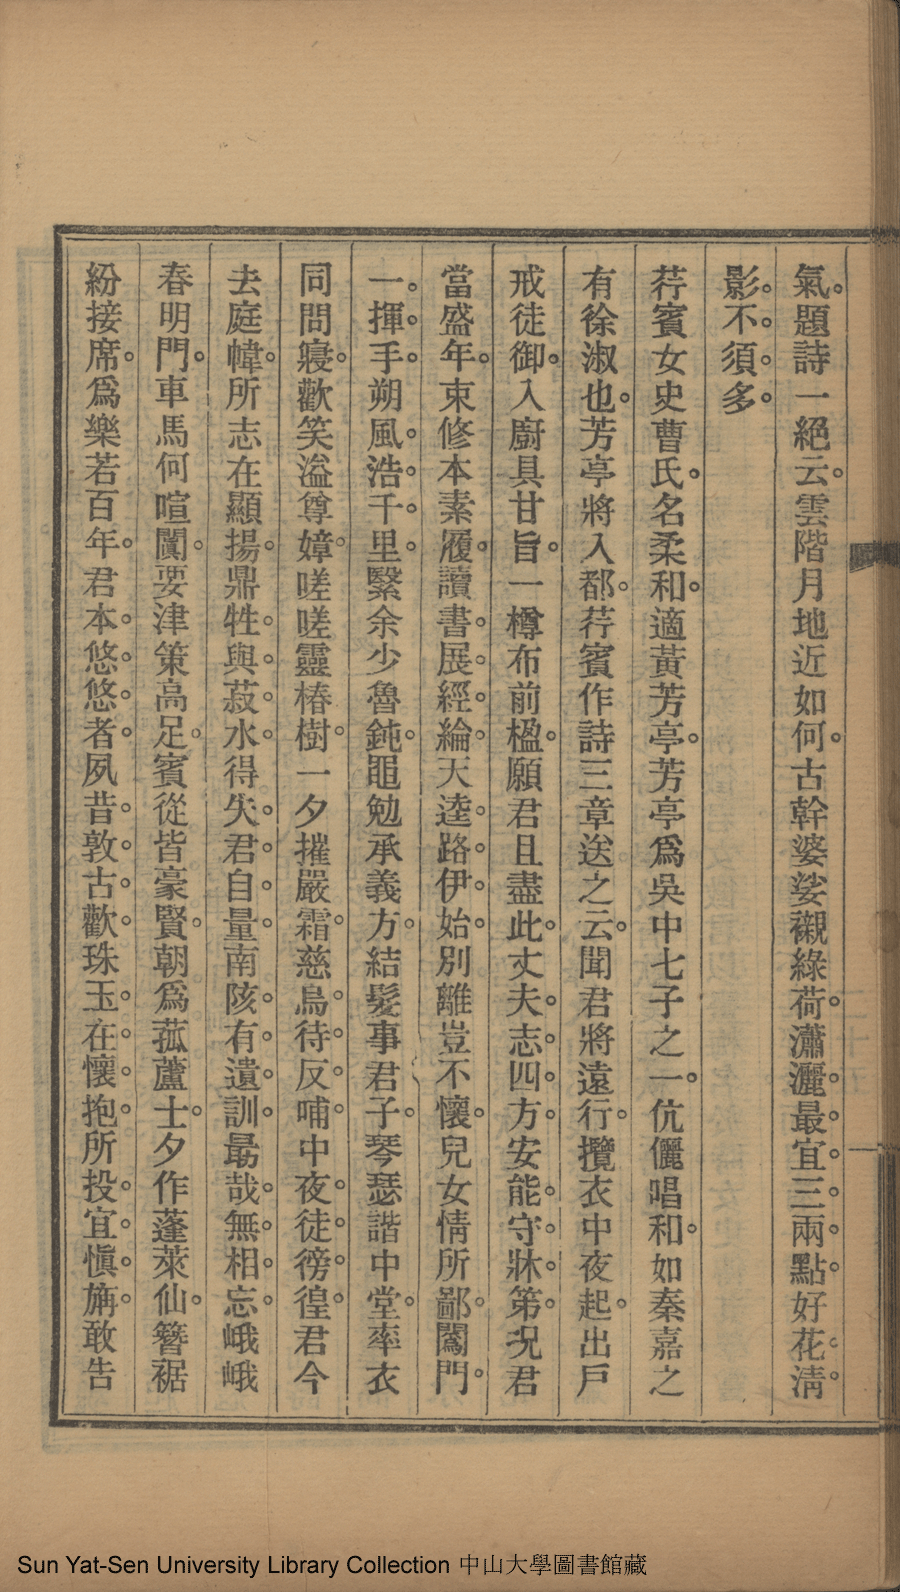 氣。題詩一絕云。雲階月地近如何。古幹婆娑襯綠荷。瀟灑。最。宜。三。兩。點。好花。淸。
影。不。須。多。
荇賓女史曹氏。名柔和。適黃芳亭。芳亭爲吳中七子之一。伉儷唱和。如秦嘉之
有徐淑也。芳亭將入都。荇賓作詩三章送之云。聞君將遠行。攬衣中夜起。出戶
戒徒御。入廚具甘旨。一樽布前楹。願君且盡此。丈夫。志。四。方。安能。守。牀。第。况君
當盛年。束修本素履。讀書。展。經。綸。天逵。路。伊。始。別離豈不懷。兒女情所鄙。闔門。
一。揮。手。朔風。浩。千。里。緊余少魯鈍。黽勉承義方。結髮事君子。琴瑟諧中堂。率衣
同問寢。歡笑溢尊嫜。嗟嗟靈椿樹。一夕摧嚴霜。慈烏。待。反。哺。中夜。徒。徬。徨。君今
去庭幃。所志在顯揚。鼎牲。與。菽。水。得失。君。自。量。南陔。有。遺。訓。最哉。無。相。忘。峨峨
春明門。車馬何喧闐。要津策高足。賓從皆豪賢。朝爲菰蘆士。夕作蓬萊仙。簪裾
紛接席。爲樂若百年。君本。悠。悠。者。夙昔。敦。古。歡。珠玉。在。懷。抱。所投。宜。愼。旃。敢告
Sun Yat-Sen University Library Collection 中山大學圖書館藏